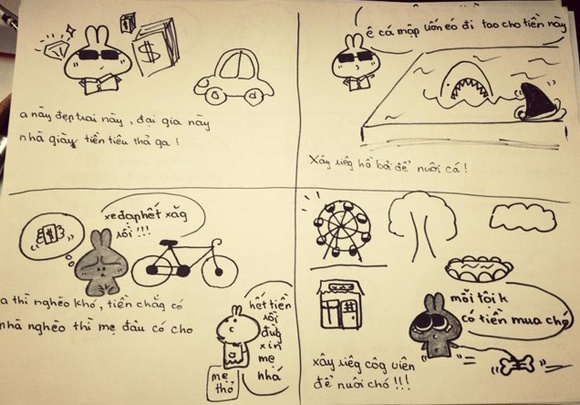 $
a này đẹp trai này, đai gia này
nhà giày tiền tiêu thả ga !
ê cá mập uốn éo đi tao cho tiền này
Xây riêg hồ bơi để nuôi cá !
$
xe đạp hết xăg
rồi !!!
a thì nghèo khó, tiền chẳg có
nhà nghèo thì mẹ đâu có cho
hết tiền
rồi
đừg
xin
mẹ
nhá
mẹ
thỏ
mỗi tội k
có tiền mua chó
xây riêg côg viên
để nuôi chó !!!